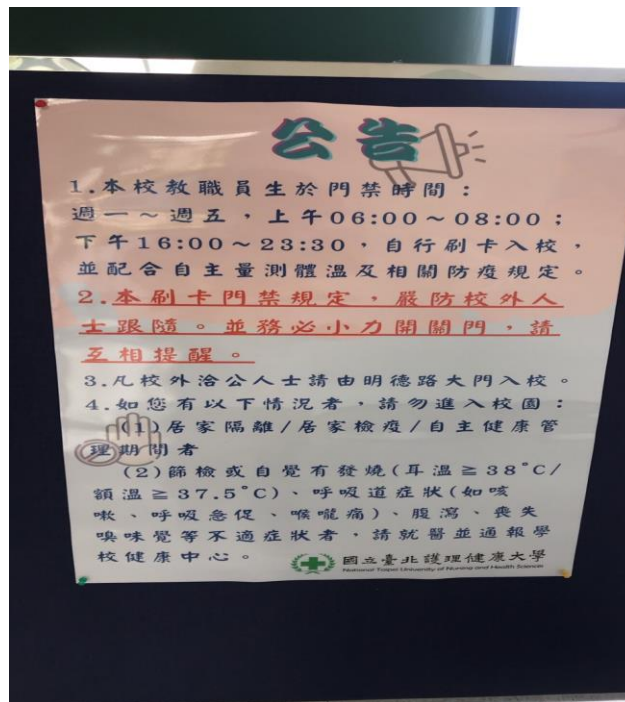 公告
1.本校教職員生於門禁時間：
週一～週五，上午06:00～08:00；
下午16:00～23:30，自行刷卡入校，
並配合自主量測體溫及相關防疫規定。
2.本刷卡門禁規定，嚴防校外人
士跟隨。並務必小力開關門，請
互相提醒。
3.凡校外洽公人士請由明德路大門入校。
4.如您有以下情況者，請勿進入校園：
(1)居家隔離/居家檢疫/自主健康管
理期間者
(2)篩檢或自覺有發燒(耳溫≧38°C/
額溫≧37.5°C)、呼吸道症狀(如咳
嗽、呼吸急促、喉嚨痛)、腹瀉、喪失
嗅味覺等不適症狀者，請就醫並通報學
校健康中心。
國立臺北護理健康大學
National Taipei University of Nursing and Health Sciences